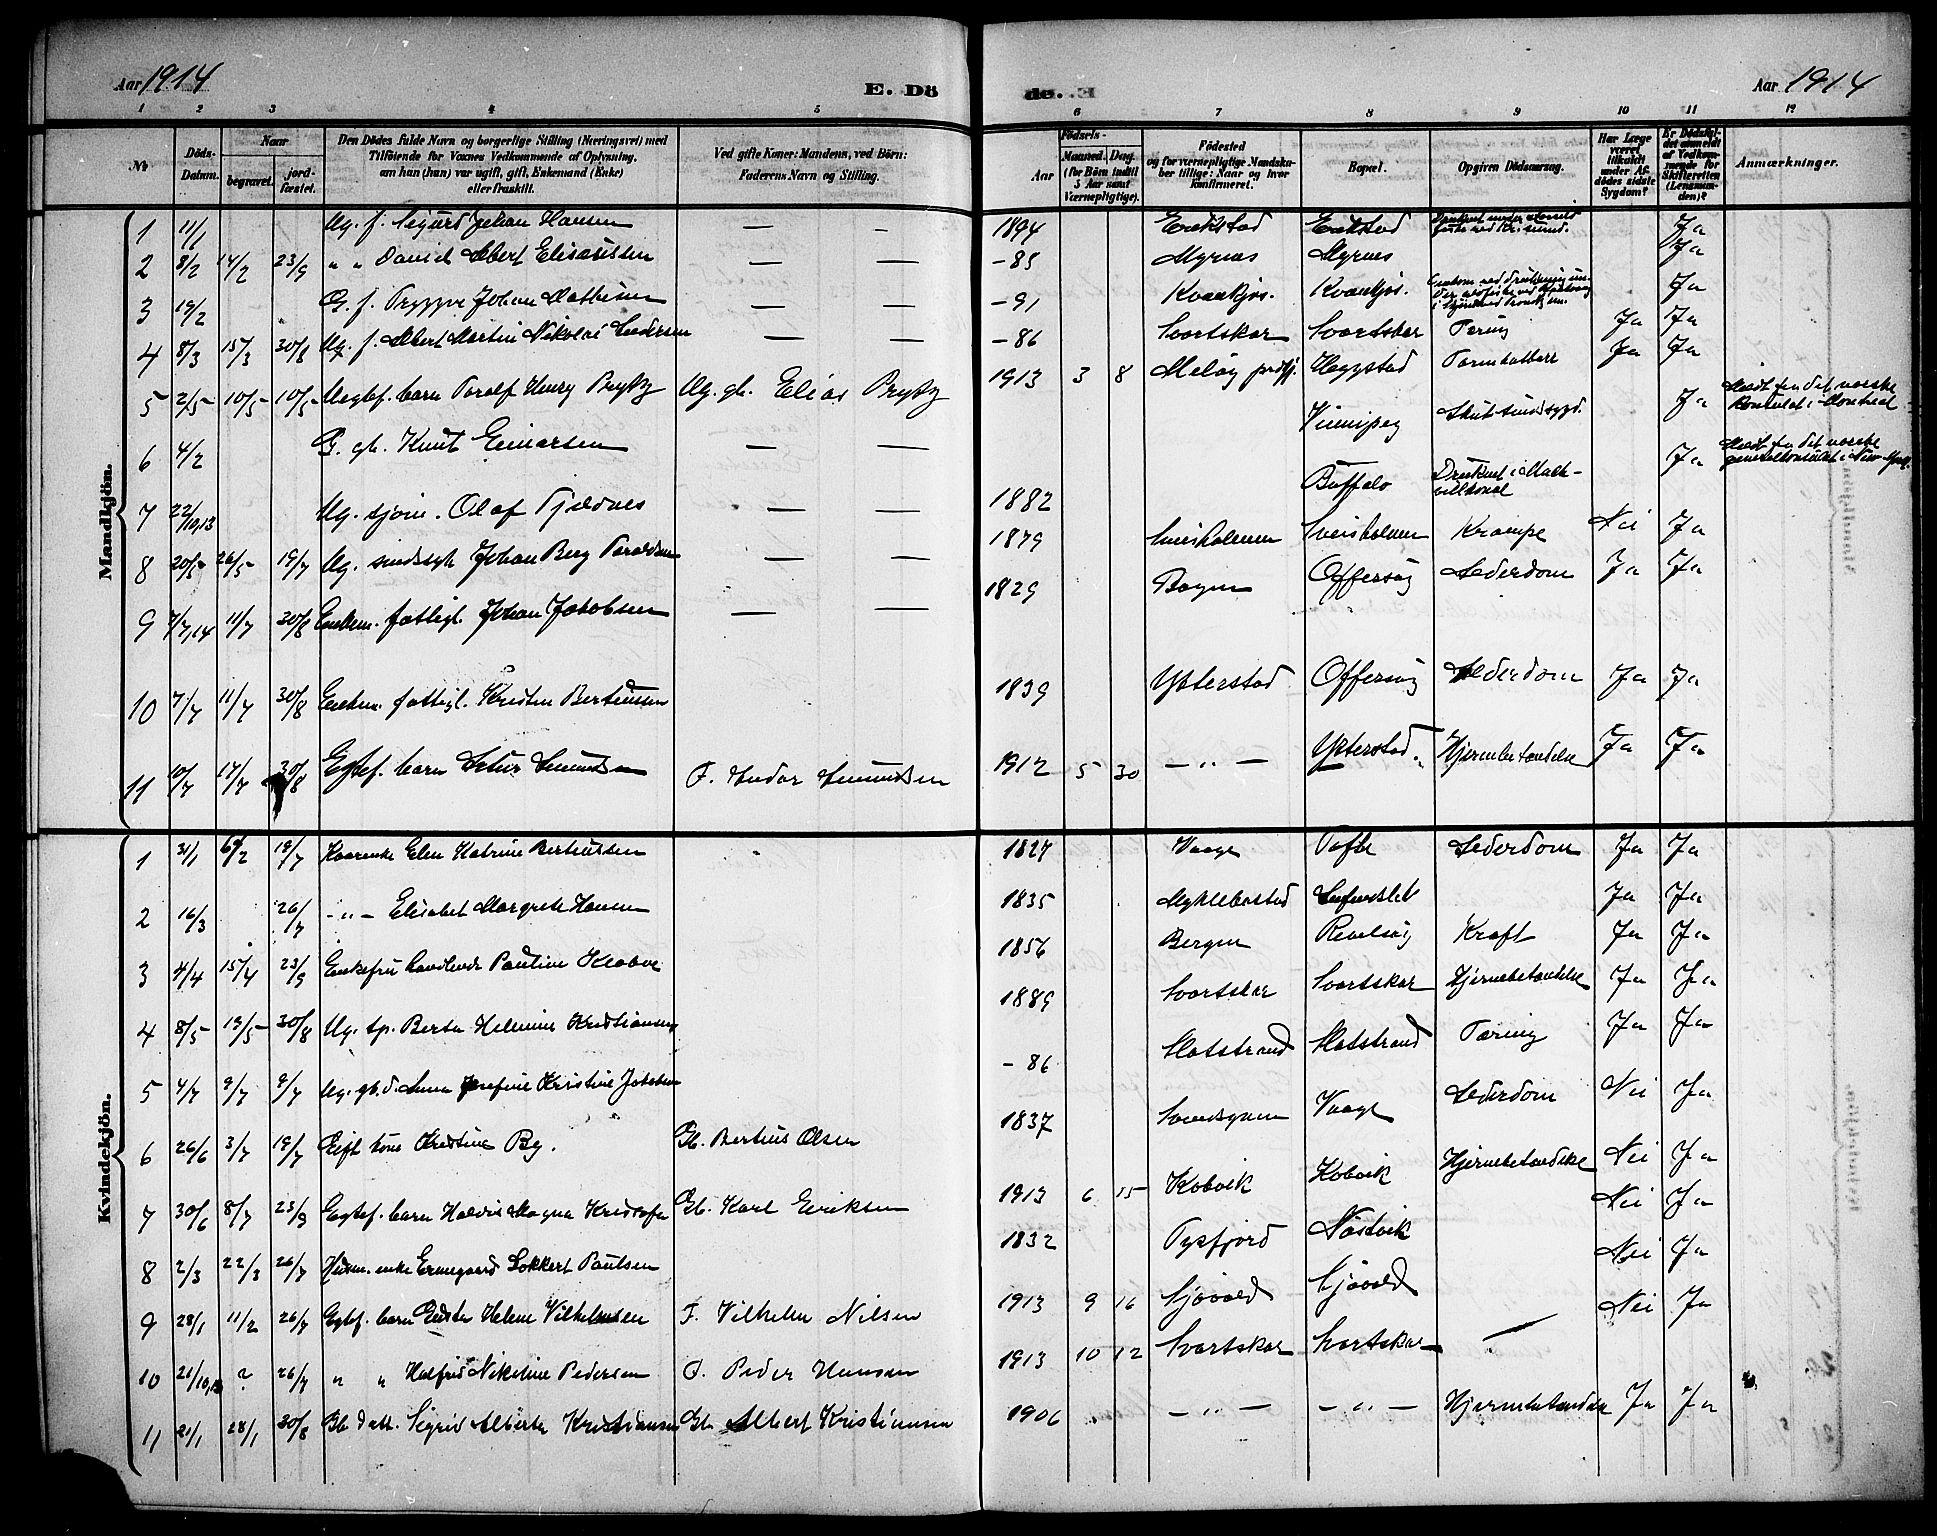 Aar 1914
E. Dö
de. E.
Aar 1914
1 2 3 4 5 6 7 8 9 10 11 12
№
Döds-Datum.
Naar
begravet.
jord-fæstet.
Den Dödes fulde Navn og borgerlige Stilling (Næringsvei) med
Tilföiende for Voxnes Vedkommende af Oplysning,
om han (hun) var ugift, gift, Enkemand (Enke)
eller fraskilt.
Ved gifte Koner: Mandens, ved Börn:
Faderens Navn og Stilling.
Födsels-
Aar
Maaned. Dag.
(for Börn indtil
5 Aar samt
Værnepligtige).
Födested
og for værnepligtige Mandska-
ber tillige: Naar og hvor
konfirmeret.
Bopæl.
Opgiven Dödsaarsag.
Har Læge
været
tilkaldt
under Af-
dödes sidste
Sygdom?
Er Dödsfal-
det anmeldt
af Vedkom-
mende for
Skifteretten
(Lensman-
den)?
Anmærkninger.
Mandkjön.
1 11/1 Ug. f. Sigurd Johan Hansen — — 1894 Erikstad Erikstad Ja
2 8/2 14/2 23/9 " " David Albert Elisæussen — — -85 Myrnes Myrnes Ja
3 19/2 G. f. Tryggve Johan Mathisen — — -91 Kvankjos. Kvankjos. Ja
4 8/3 15/3 30/8 Ug. f. Albert Martin Nikolai Andersen — — -86 Svartskar Svartskar Tæring Ja Ja
5 2/5 10/5 10/5 Uegtef. barn Toralf Henry Ug. gb. Elias 1913 3 8 Meløy prgj. Heggstad Ja Ja
6 4/2 G. gb. Knut Einarsen — — Vinnipeg Ja Medt fra det norske
konsulat i Montreal
7 22/10,13 Ug. sjøm. Olaf Tjeldnes — — 1882 Buffalo Druknet i Ja Medt fra det norske
generalkonsulat i New York
8 20/5 26/5 19/7 Ug. sindssyk Johan Berg Toraldsen — — 1879 Sveisholmen Sveisholmen Krampe Nei Ja
9 7/7,14 11/7 30/8 Enkem. fattigl. Johan Jakobsen — — 1829 Bogen Offersøy Alderdom Ja Ja
10 7/7 11/7 30/8 Enkem. fattigl. Kristen Berteussen 1839 Ytterstad Offersøy Alderdom Ja Ja
11 10/7 17/7 30/8 Egtef. barn Artur Amundsen F. Andor Amundsen 1912 5 30 — " — Ytterstad Hjernebetændelse Ja Ja
Kvindekjön.
1 31/1 6/2 19/7 Kaarenke Elen Katrine Berteussen 1827 Vaage Tofte Alderdom Ja Ja
2 16/3 26/7 — " — Elisabet Margrete Hansen 1835 Myklebostad Ja Ja
3 4/4 15/4 23/9 Enkefru Pauline Klabou 1856 Bergen Revelsøy Kræft Ja Ja
4 8/5 19/5 30/8 Ug. tp. Berta Helmine Kristiansen 1889 Svartskar Svartskar Hjernebetændelse Ja Ja
5 4/7 9/7 9/7 Ug. gb. d. Anna Josefine Kristine Jakobsen -86 Slotstrand Slotstrand Tæring Ja Ja
6 26/6 3/7 19/7 Gift Kristine By. Gb. Berteus Olsen 1837 Vaage Alderdom Nei Ja
7 30/6 8/7 23/9 Egtef. barn Magna Gb. Karl Eriksen 1913 6 15 Kobvik Kobvik Hjernebetændelse Nei Ja
8 2/3 22/3 26/7 Husm. enke Ermegaard Lokkert Paulsen 1832 Tysfjord Nei Ja
9 28/1 11/2 26/7 Egtef. barn Helene Vilhelmsen F. Vilhelm Nilsen 1913 9 16 Sjøvold Sjøvold Nei Ja
10 21/10,13 ? 26/7 " " Halfrid Nikoline Pedersen F. Peder Hansen 1913 10 12 Svartskar Svartskar Nei Ja
11 21/1 28/1 30/8 Gb. datt. Sigrid Alberta Kristiansen Gb. Albert Kristiansen 1906 — " — — " — Hjernebetændelse Ja Ja